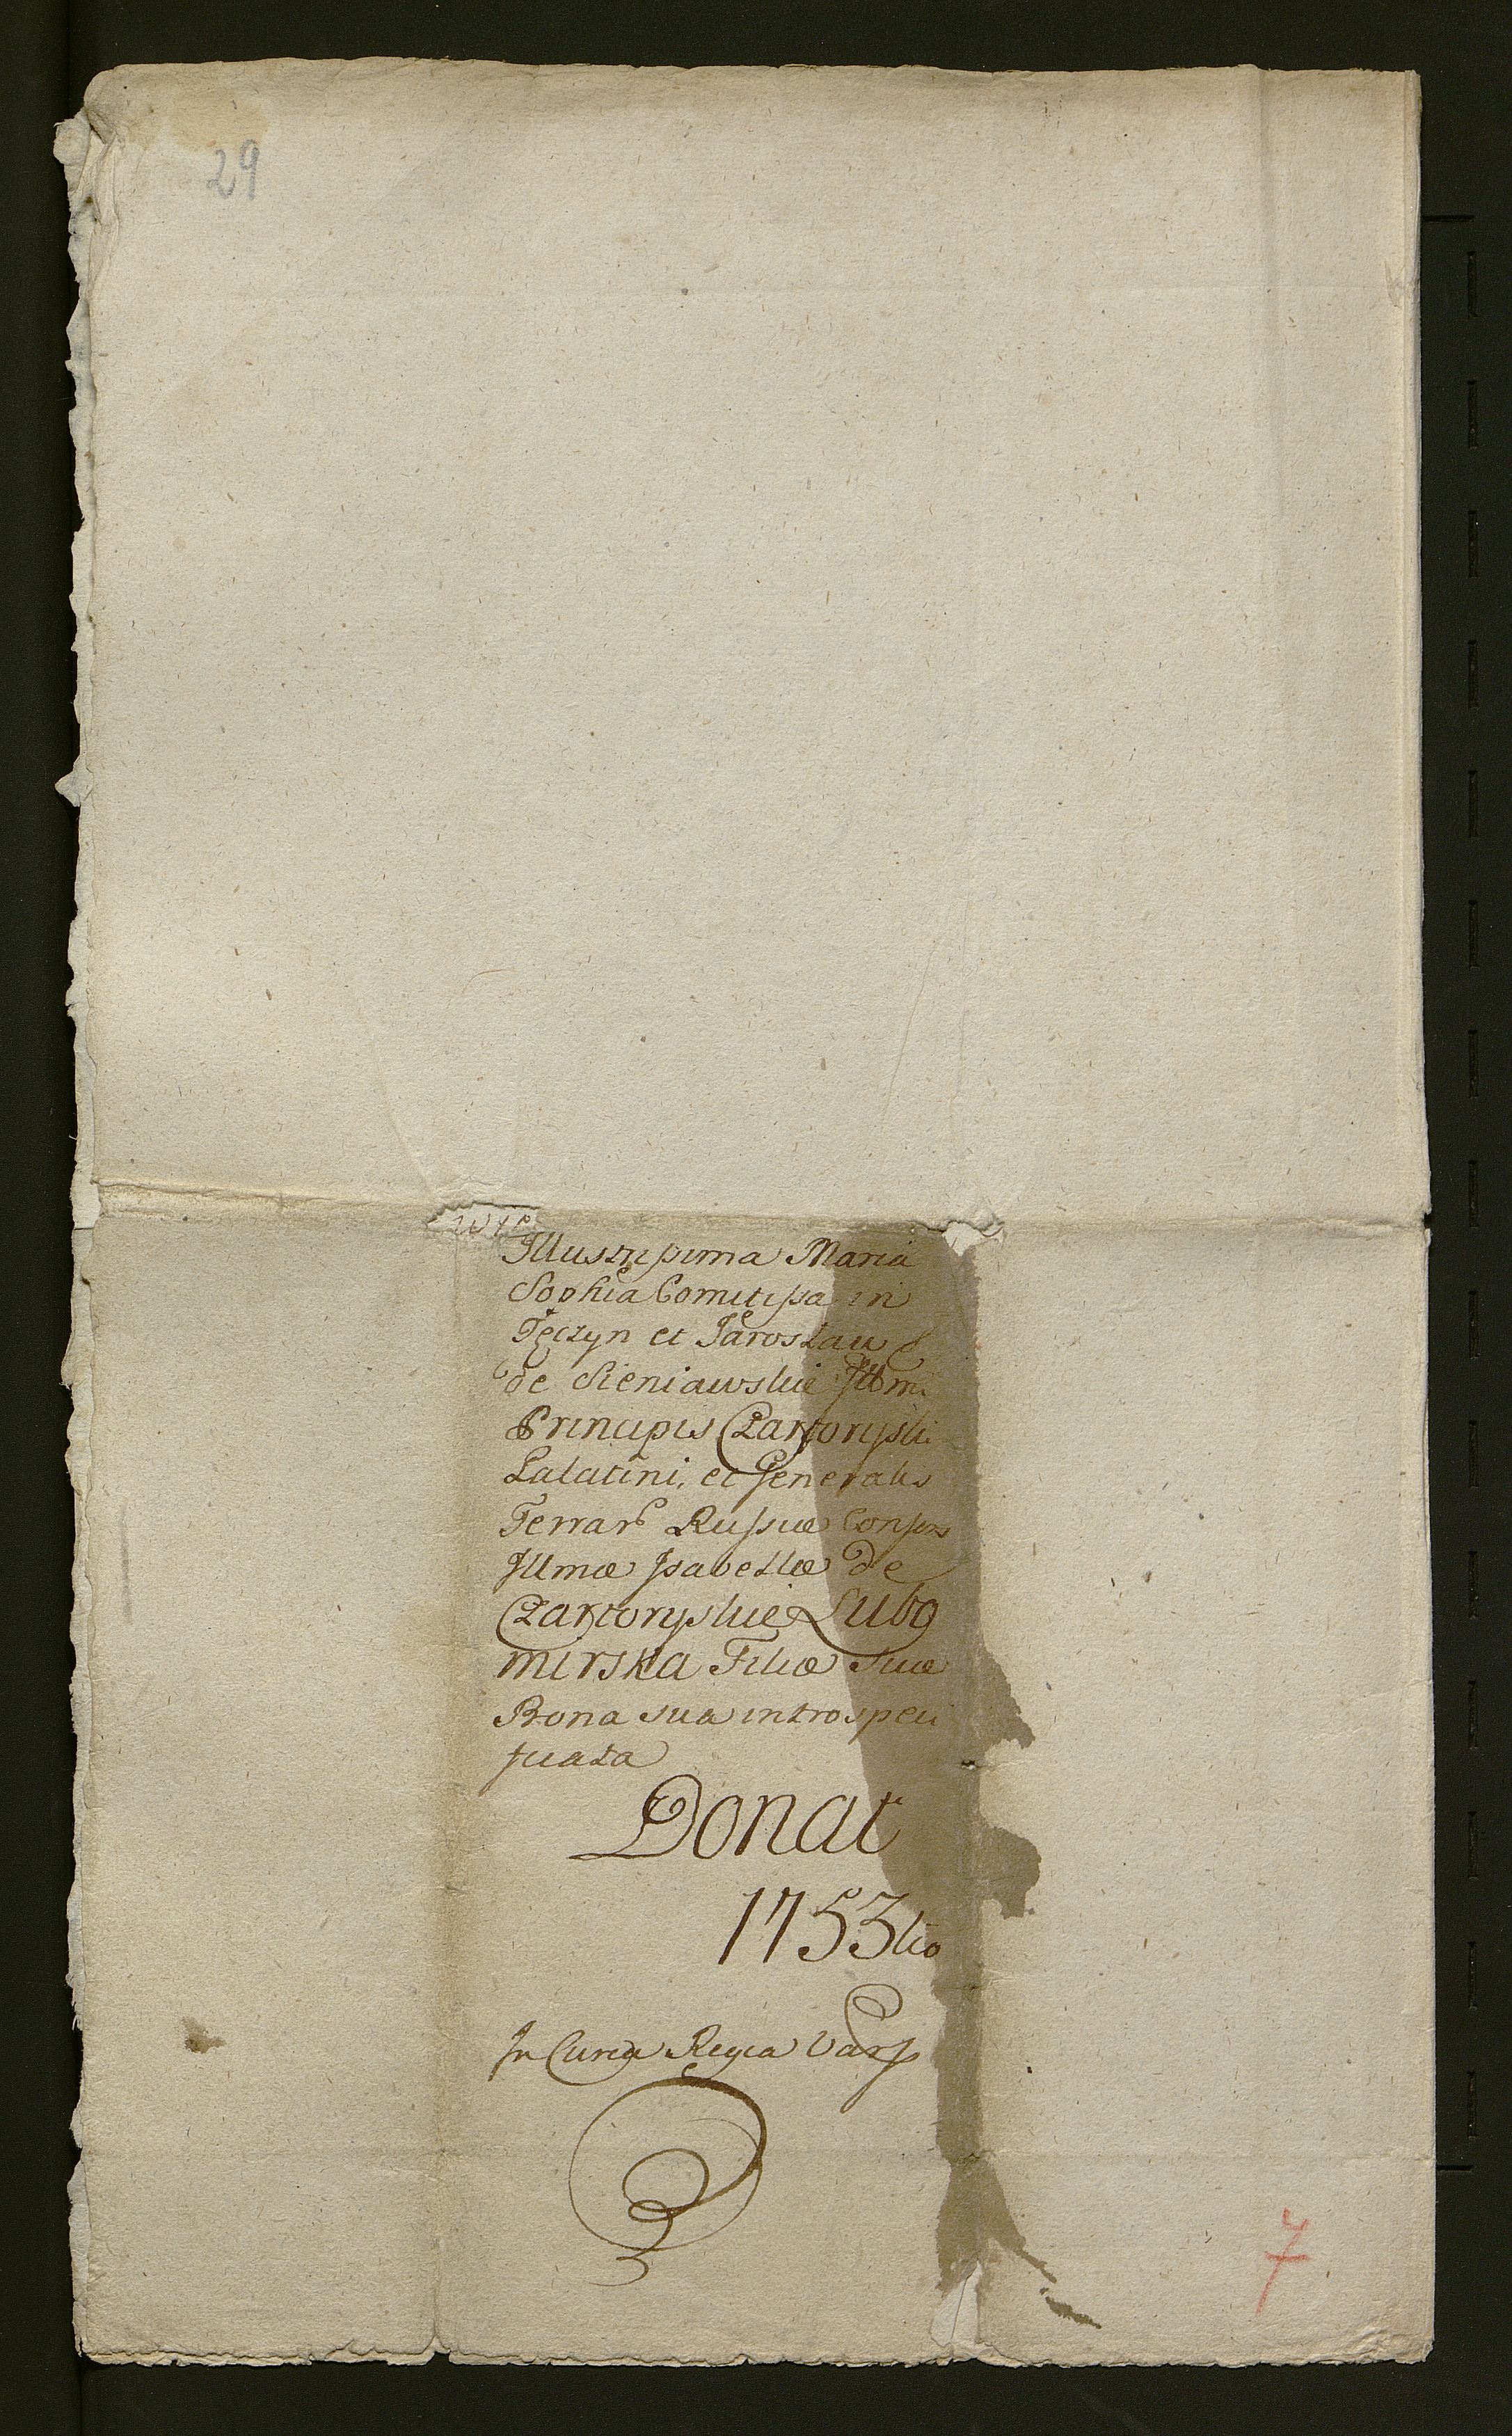 29
Illustrissima Maria
Sophia Comitissa in
Tęczyn et Jarosław
de Sieniawskie Illmi
Principis Czartoryski
Palatini, et Generalis
Terrar Russiæ Consors
Illmæ Isabellæ de
Czartoryskie Lubo
mirska Filiæ Suæ
Bona sua introspeci
ficata
Donat
1753tio
In Curia Regia Vars
7